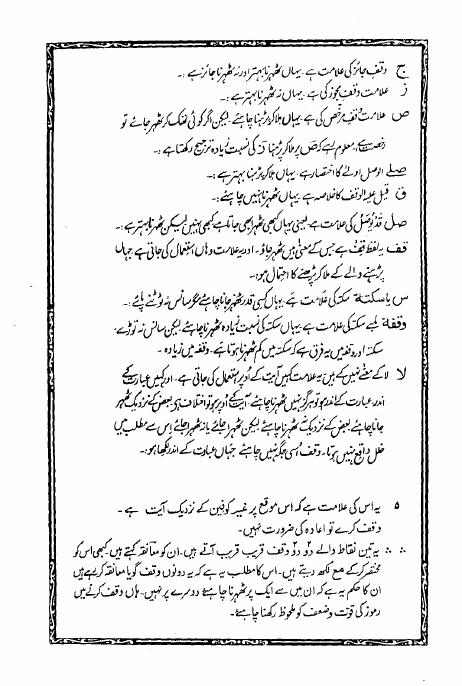 ج وقفِ جائز کی علامت ہے۔ یہاں ٹھہرنا بہتر اور نہ ٹھہرنا جائز ہے۔
ز علامت وقفِ مجوّز کی ہے۔ یہاں نہ ٹھہرنا بہتر ہے۔
ص علامت وقفِ مرخّص کی ہے۔ یہاں ملا کر پڑھنا چاہئے لیکن اگر کوئی تھک کر ٹھہر جائے تو
رخصت ہے۔ معلوم رہے کہ ص پر ملا کر پڑھنا ز کی نسبت زیادہ ترجیح رکھتا ہے۔
صلے الوصل اولےٰ کا اختصار ہے۔ یہاں ملا کر پڑھنا بہتر ہے۔
ق قیل علیہ الوقف کا خلاصہ ہے۔ یہاں ٹھہرنا نہیں چاہئے۔
صل قد یوصل کی علامت ہے یعنی یہاں کبھی ٹھہرا بھی جاتا ہے کبھی نہیں لیکن ٹھہرنا بہتر ہے۔
قف یہ لفظ قِف ہے جس کے معنیٰ ہیں ٹھہر جاؤ۔ اور یہ علامت وہاں استعمال کی جاتی ہے جہاں
پڑھنے والے کے ملا کر پڑھنے کا احتمال ہو۔
س یا سکتة سکتہ کی علامت ہے یہاں کسی قدر ٹھہر جانا چاہئے مگر سانس نہ ٹوٹنے پائے۔
وقفة لمبے سکتہ کی علامت ہے یہاں سکتہ کی نسبت زیادہ ٹھہرنا چاہئے لیکن سانس نہ توڑے۔
سکتہ اور وقفہ میں یہ فرق ہے کہ سکتہ میں کم ٹھہرنا ہوتا ہے۔ وقفہ میں زیادہ۔
لا لا کے معنے نہیں کے ہیں یہ علامت کہیں آیت کے اُوپر استعمال کی جاتی ہے۔ اور کہیں عبارت کے
اندر۔ عبارت کے اندر ہو تو ہرگز نہیں ٹھہرنا چاہئے۔ آیت کے اُوپر ہو تو اختلاف ہے بعض کے نزدیک ٹھہر
جانا چاہئے بعض کے نزدیک نہ ٹھہرنا چاہئے لیکن ٹھہرا جائے یا نہ ٹھہرا جائے اِس سے مطلب میں
خلل واقع نہیں ہوتا۔ وقف اُسی جگہ نہیں چاہئے جہاں عبارت کے اندر لکھا ہو۔
۵ یہ اس کی علامت ہے کہ اس موقع پر غیر کوفیین کے نزدیک آیت ہے۔
وقف کرے تو اعادہ کی ضرورت نہیں۔
∴ ∴ یہ تین نقاط والے دو وقف قریب قریب آتے ہیں۔ ان کو معانقہ کہتے ہیں۔ کبھی اس کو
مختصر کر کے مع لکھ دیتے ہیں۔ اس کا مطلب یہ ہے کہ یہ دونوں وقف گویا معانقہ کر رہے ہیں
ان کا حکم یہ ہے کہ ان میں سے ایک پر ٹھہرنا چاہئے دوسرے پر نہیں۔ ہاں وقف کرنے میں
رموز کی قوت وضعف کو ملحوظ رکھنا چاہئے۔